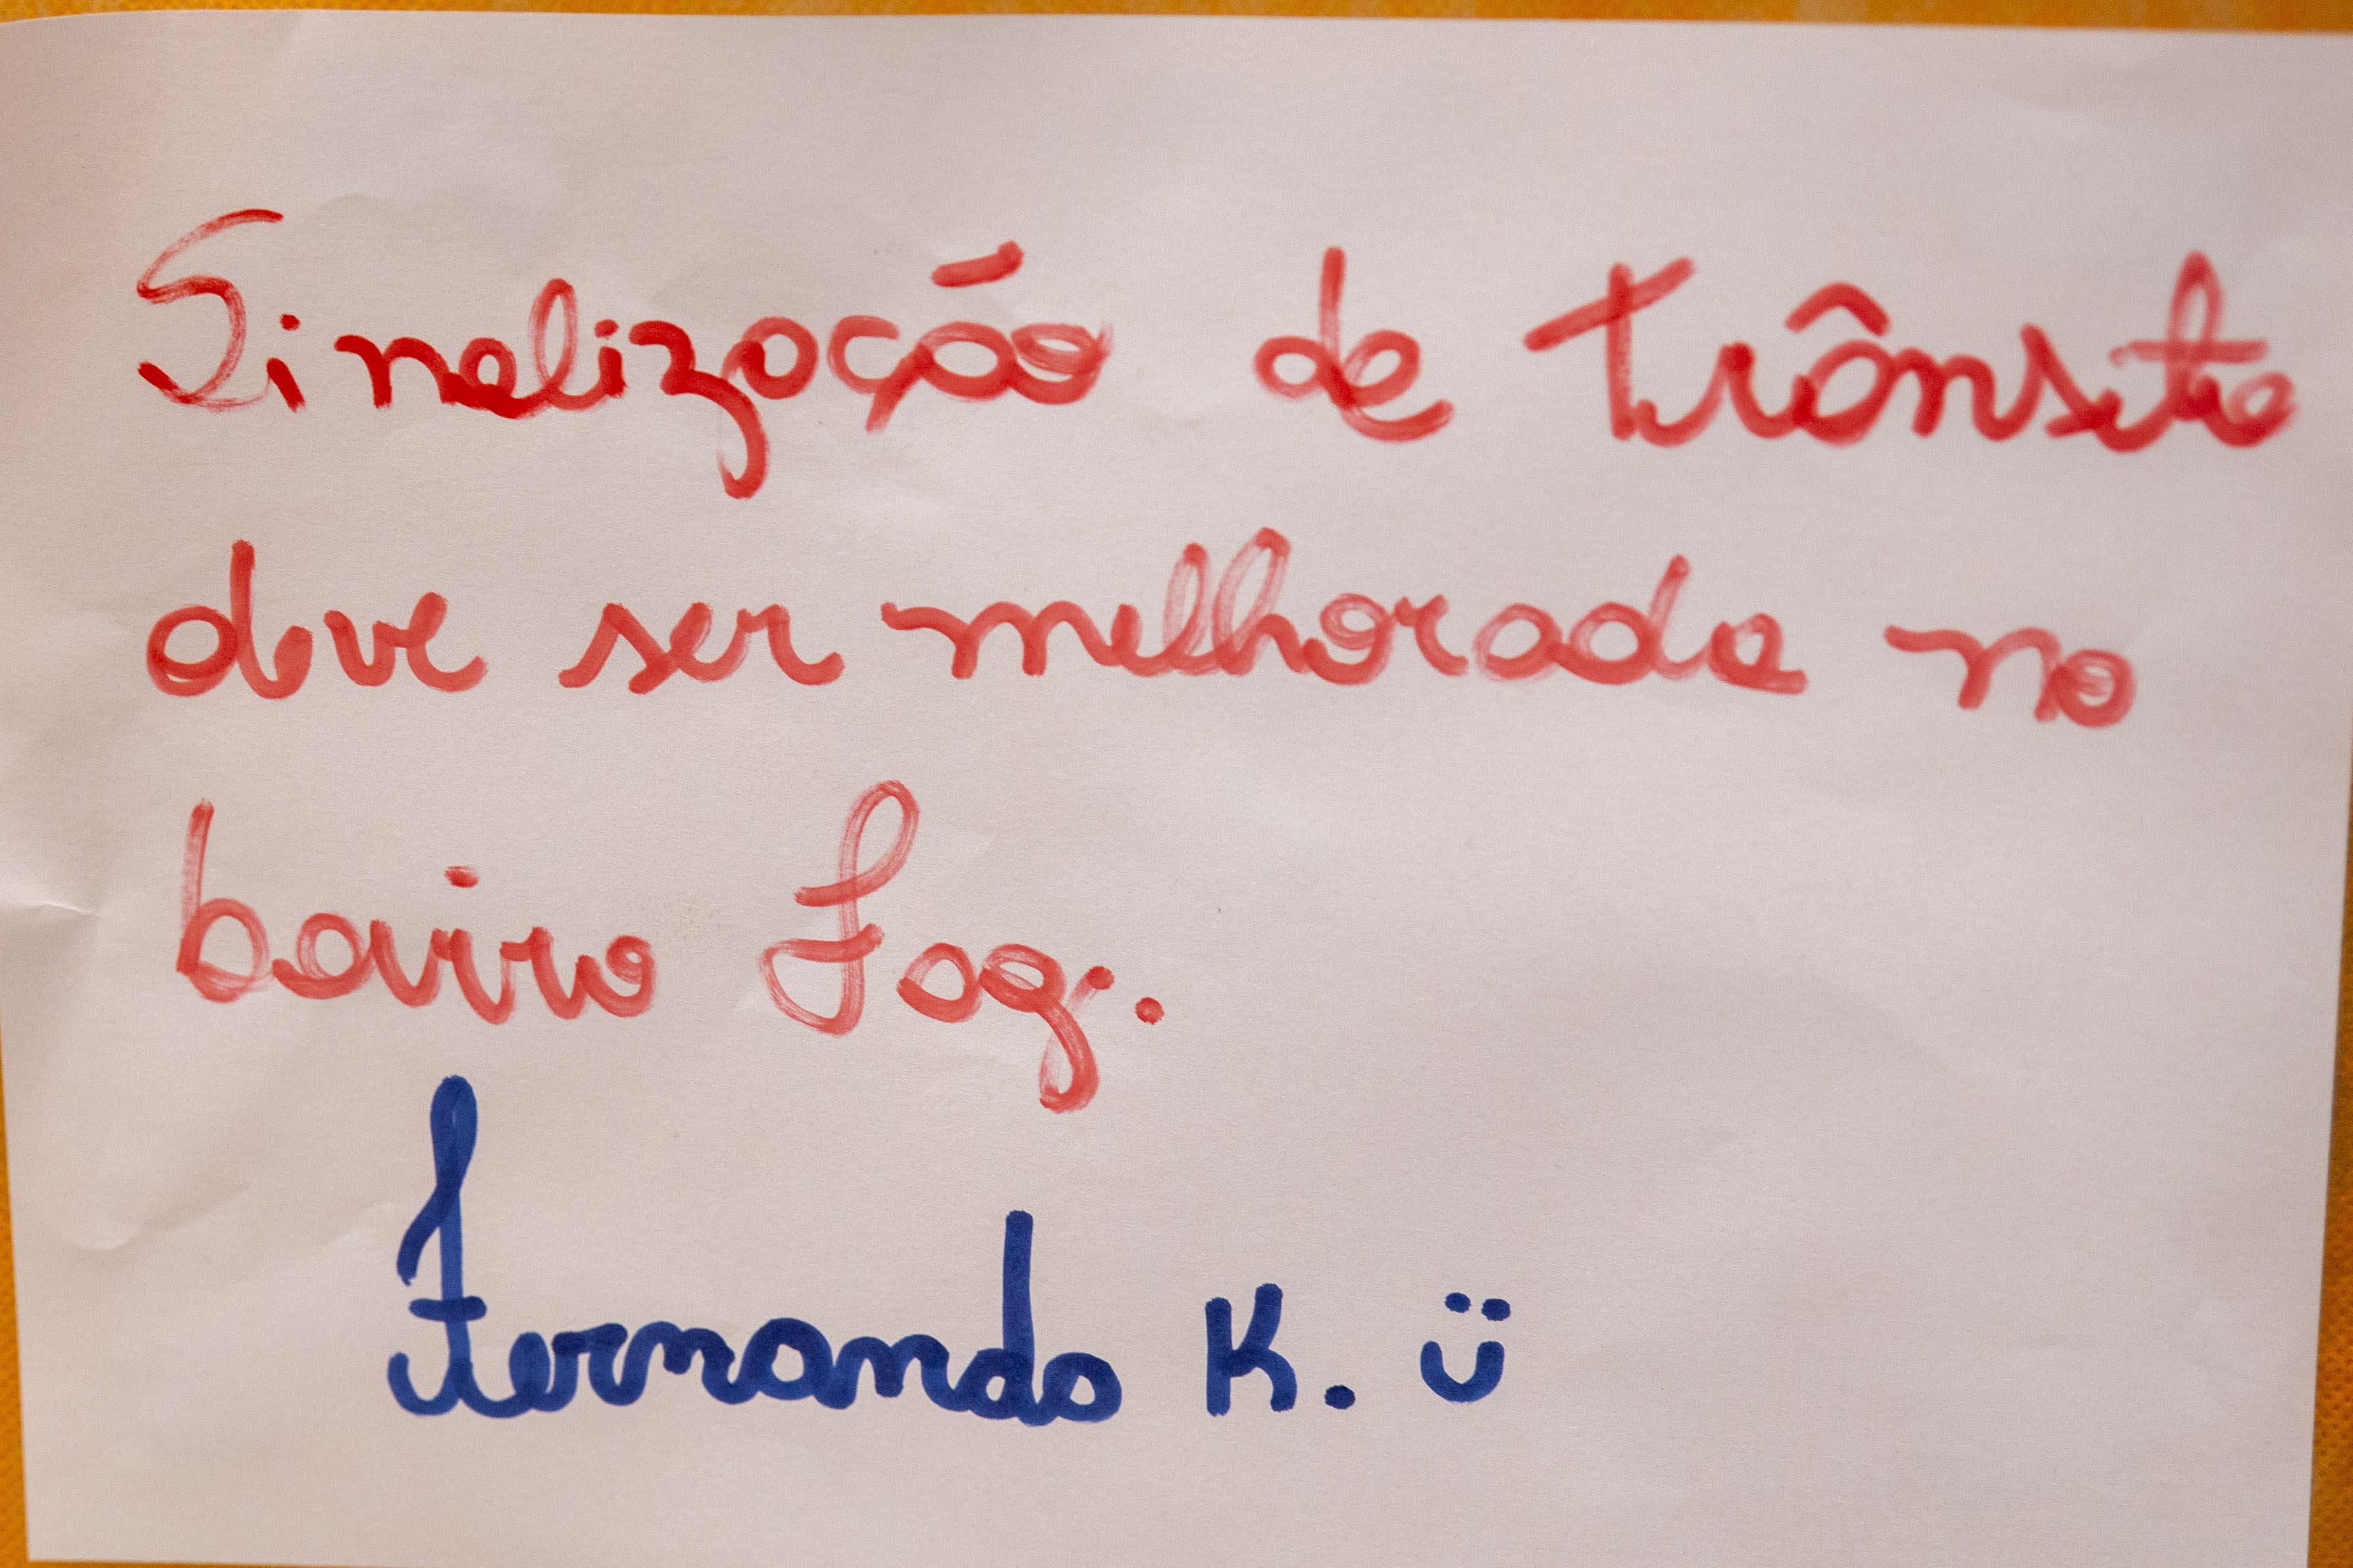 Sinalização de Trânsito
deve ser melhorada no
bairro Fag.
Fernando K. ü